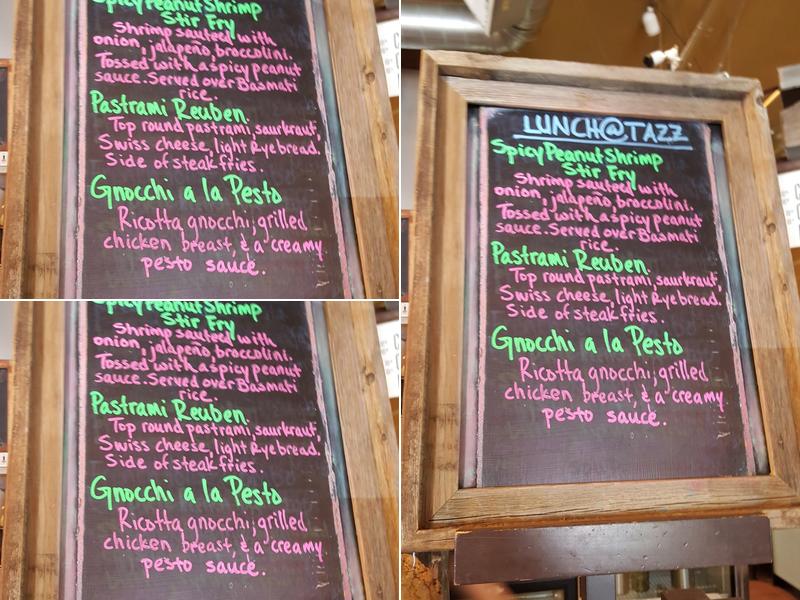 Spicy Peanut Shrimp
Stir Fry
Shrimp sauteed with
onion, jalapeño, broccolini.
Tossed with a spicy peanut
sauce. Served over Basmati
rice.
Pastrami Reuben.
Top round pastrami, saurkraut,
Swiss cheese, light Rye bread.
Side of steak fries.
Gnocchi a la Pesto
Ricotta gnocchi, grilled
chicken breast, & a creamy
pesto sauce.
LUNCH@TAZZ
Spicy Peanut Shrimp
Stir Fry
Shrimp sauteed with
onion, jalapeño, broccolini.
Tossed with a spicy peanut
sauce. Served over Basmati
rice.
Pastrami Reuben.
Top round pastrami, saurkraut,
Swiss cheese, light Rye bread.
Side of steak fries.
Gnocchi a la Pesto
Ricotta gnocchi, grilled
chicken breast, & a creamy
pesto sauce.
Spicy Peanut Shrimp
Stir Fry
Shrimp sauteed with
onion, jalapeño, broccolini.
Tossed with a spicy peanut
sauce. Served over Basmati
rice.
Pastrami Reuben.
Top round pastrami, saurkraut,
Swiss cheese, light Rye bread.
Side of steak fries.
Gnocchi a la Pesto
Ricotta gnocchi, grilled
chicken breast, & a creamy
pesto sauce.